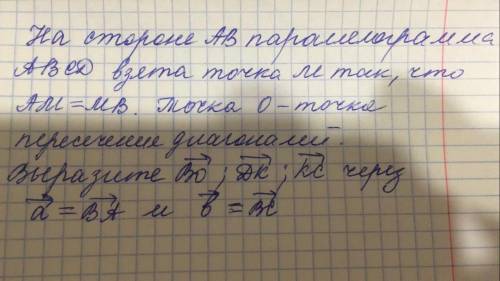 На стороне AB параллелограмма
ABCD взята точка M так, что
AM=MB. Точка O - точка
пересечение диагоналей.
Выразите BO; ДК; KC через
a = BA и b = BC